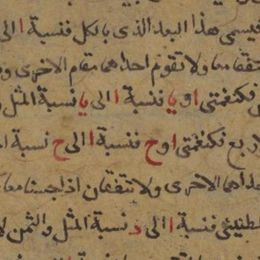 فيسمى هذا البعد الذى بالكل فنسبة ا الى
معا ولا تقوم احداهما مقام الاخرى و
فكنغمتى ا و يا فنسبة ا الى يا نسبة المثل و
اربع فكنغمتى ا و ح فنسبة ا الى ح نسبة ا
احداهما الاخرى ولا تتفقان اذا جمعتا معا
فنسبة ا الى د نسبة المثل والثمن